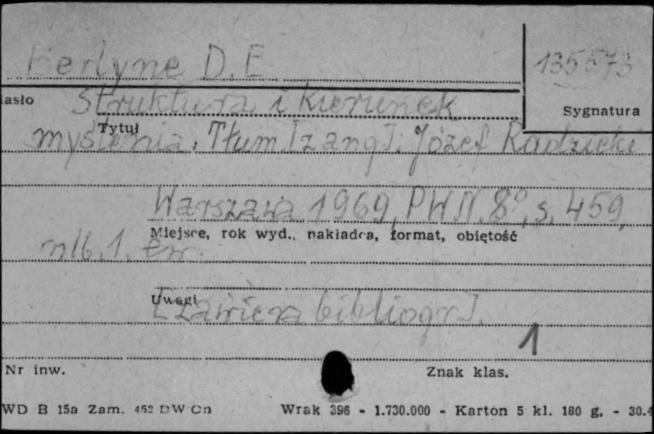 Berlyne D.E
135573
asło
Sygnatura
Struktura i kierunek
Tytuł
myślenia. Tłum [z ang]. Józef Radzicki
Warszawa 1969, PWN. 8°, s. 459,
Miejsce, rok wyd., nakładca, format, objętość
nlb. 1. err.
Uwagi
[zawiera bibliogr].
1
Nr inw.
Znak klas.
WD B 15a Zam. 452 DW Cn
Wrak 396 - 1.730.000 - Karton 5 kl. 180 g. - 30.4